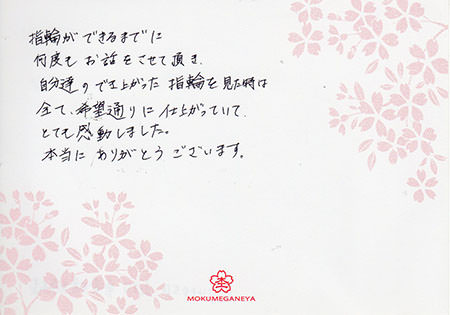 指輪ができるまでに
何度もお話をさせて頂き、
自分達のでき上がった指輪を見た時は
全て、希望通りに仕上がっていて、
とても感動しました。
本当にありがとうございます。
MOKUMEGANEYA